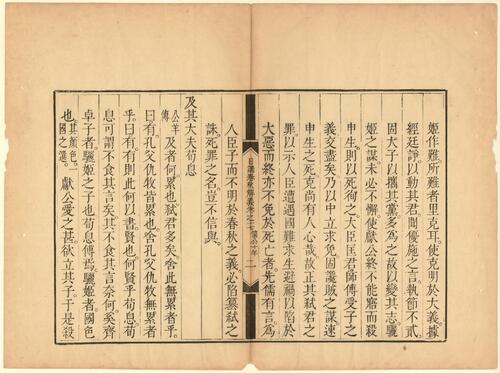 姬作難所難者里克耳使克明於大義據
經廷諍以動其君聞優施之言執節不貳
固大子以攜其黨多為之故以變其志驪
姬之謀未必不懈使獻公終不能寤而殺
申生則以死徇之大臣匡君師傅受子之
義交盡矣乃以中立求免固讒賊之謀速
申生之死克尚有人心哉故正其弒君之
罪以示人臣遭遇國難求生避禍以陷於
大惡而終亦不免於死亡者先儒有言為
日講春秋解義卷之七 僖公十年 二
人臣子而不明於春秋之義必陷篡弒之
誅死罪之名豈不信與
及其大夫荀息
公羊傳及者何累也弒君多矣舍此無累者乎
曰有孔父仇牧皆累也舍孔父仇牧無累者
乎曰有有則此何以書賢也何賢乎荀息荀
息可謂不食其言矣其不食其言奈何奚齊
卓子者驪姬之子也荀息傅焉驪姬者國色
也其顏色一國之選獻公愛之甚欲立其子於是殺